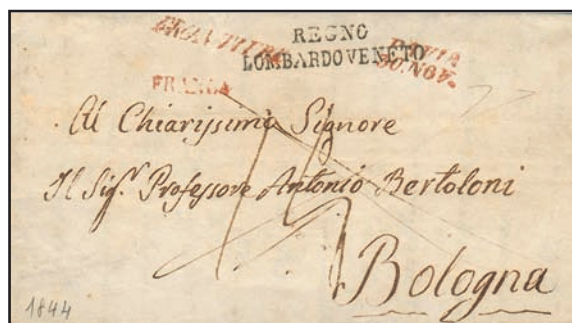 REGNO
LOMBARDO VENETO
PAVIA
30. NOV.
FRANCA
Al Chiarissimo Signore
Il Sigr. Professore Antonio Bertoloni
Bologna
1844